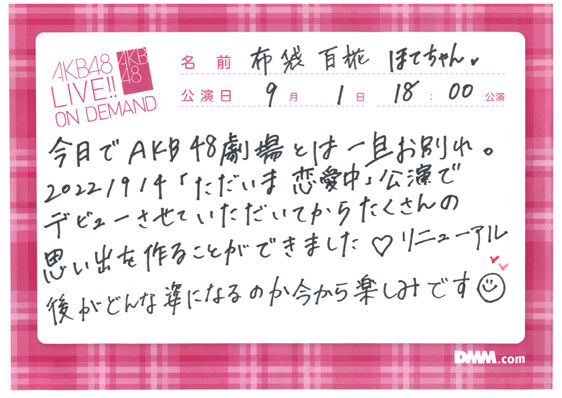 AKB48
LIVE!!
ON DEMAND
AKB
48
名前 布袋 百椛 ほてちゃん。
公演日 9月 1日 18:00 公演
今日でAKB48劇場とは一旦お別れ。
2022/9/4「ただいま 恋愛中」公演で
デビューさせていただいてからたくさんの
思い出を作ることができました♡リニューアル
後がどんな姿になるのか今から楽しみです
DMM.com